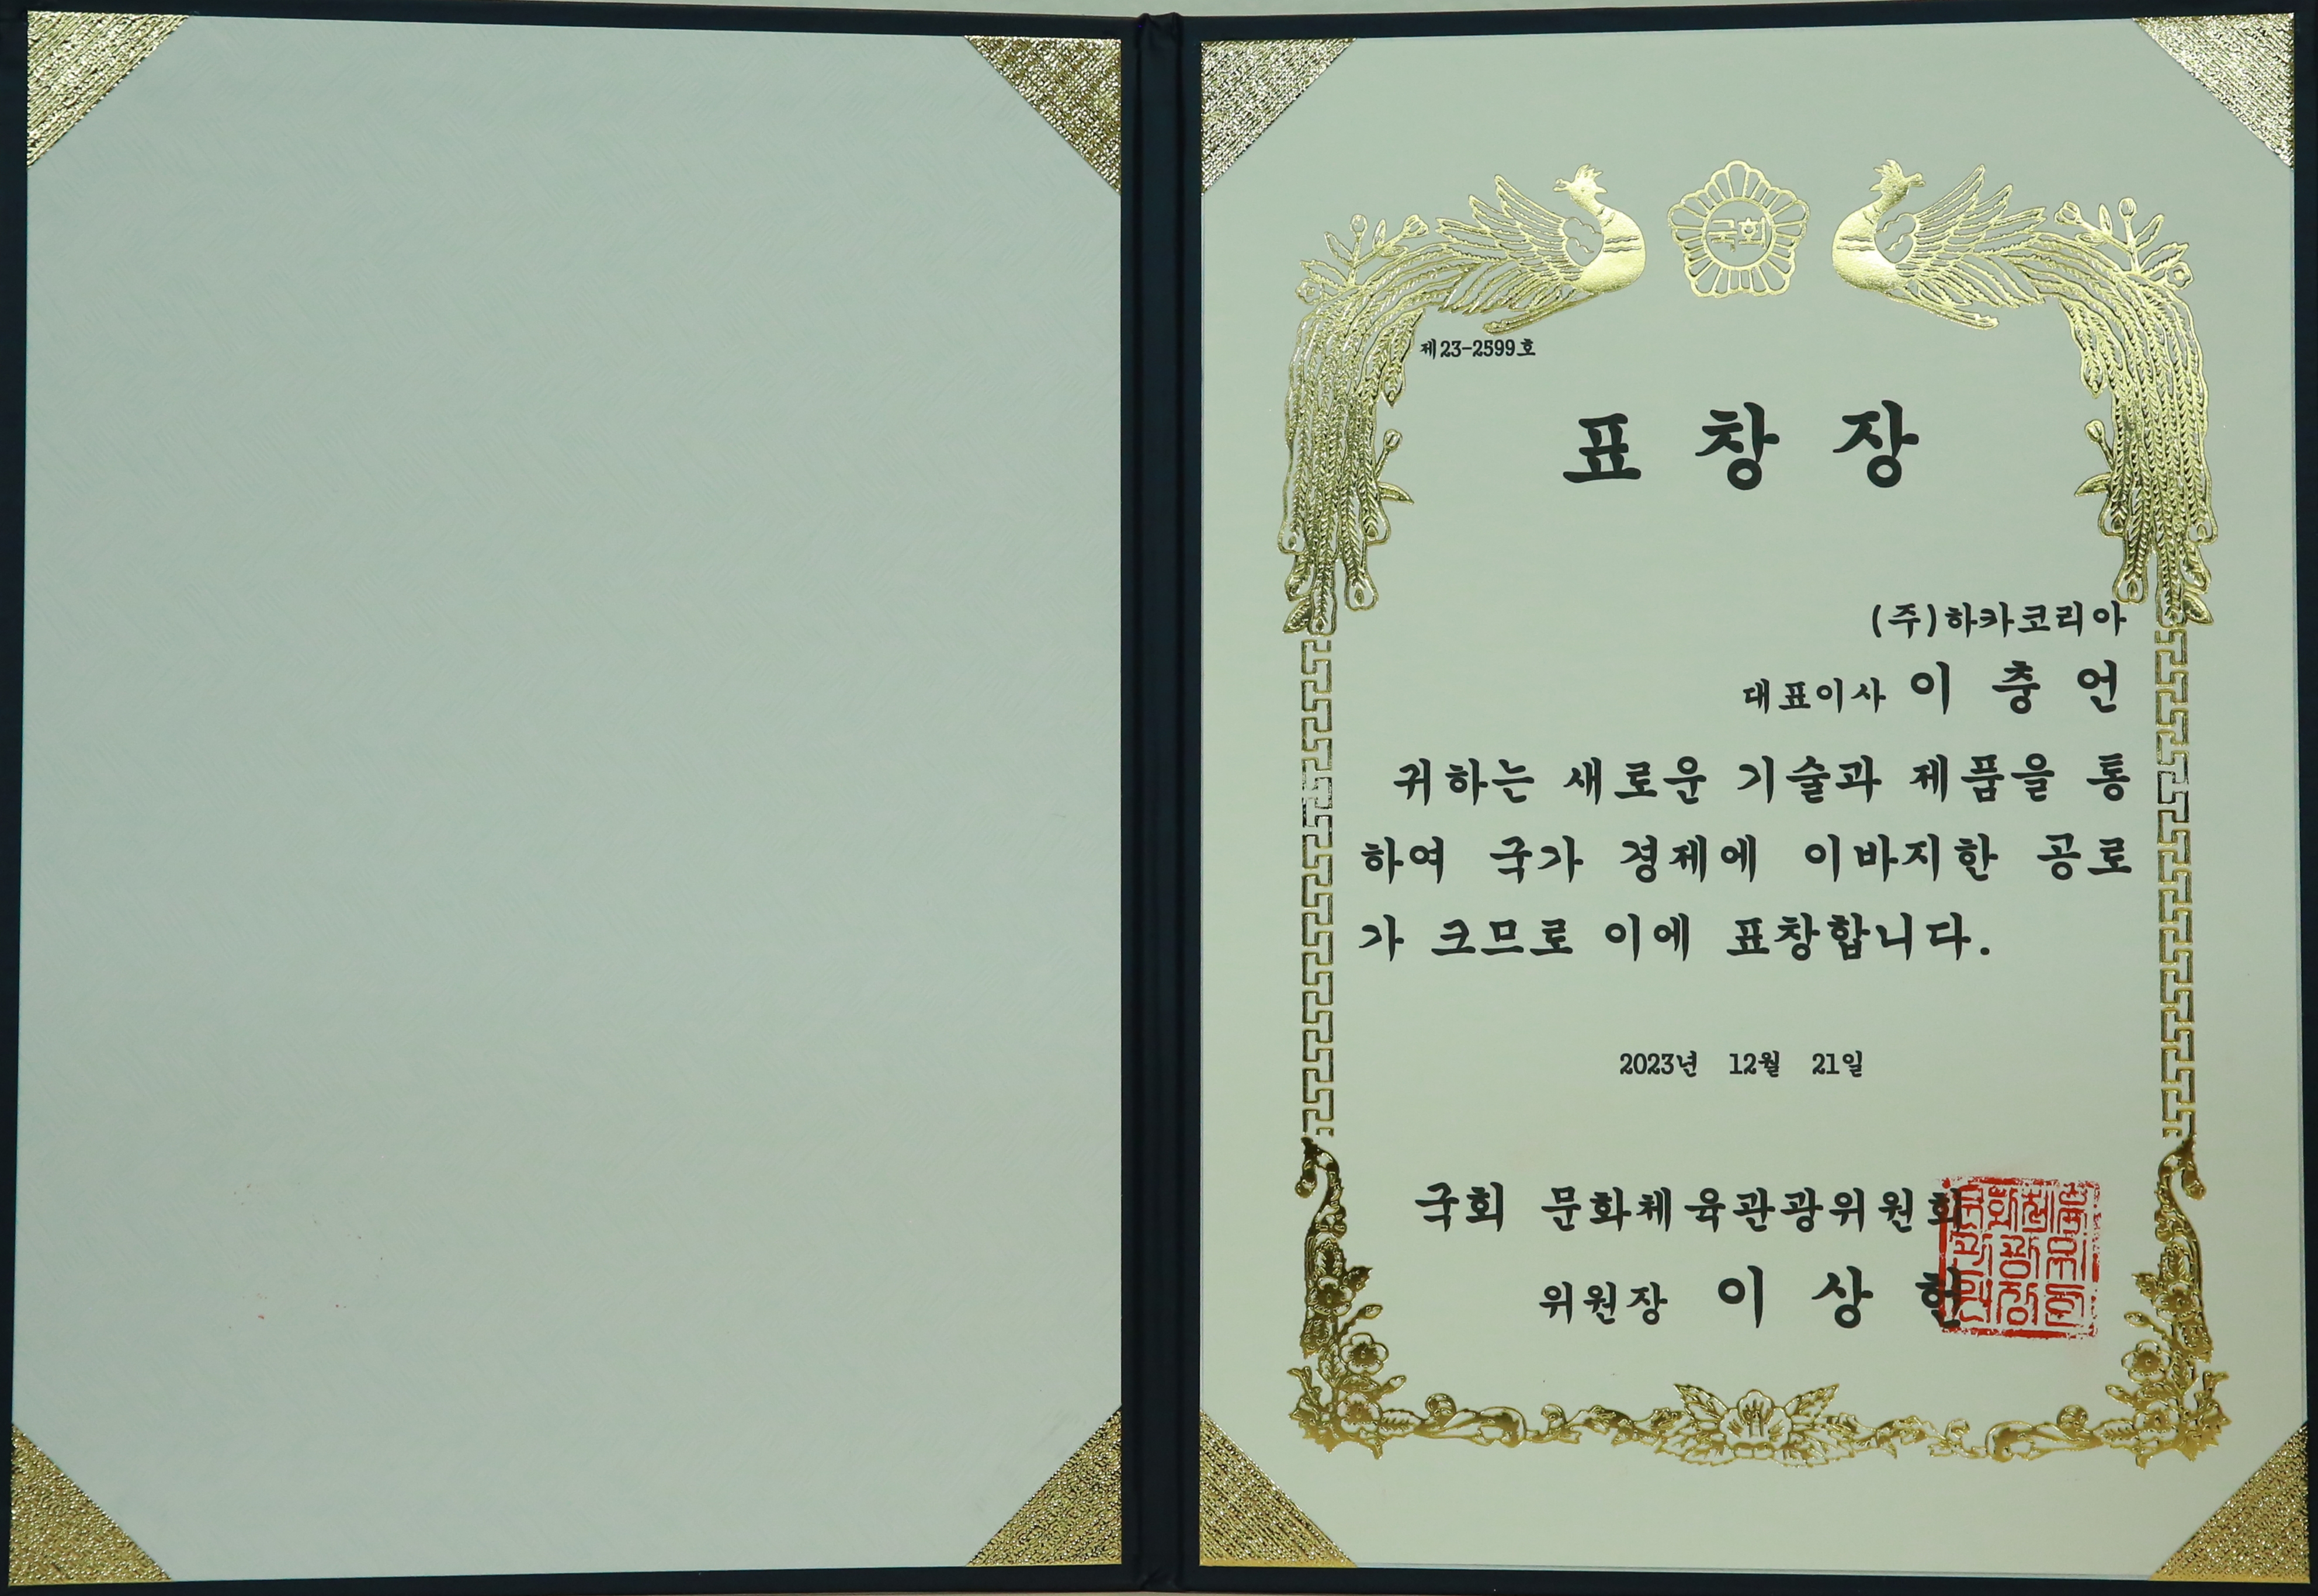 국회
제23-2599호
표 창 장
(주)하카코리아
대표이사 이 충 언
귀하는 새로운 기술과 제품을 통
하여 국가 경제에 이바지한 공로
가 크므로 이에 표창합니다.
2023년 12월 21일
국회 문화체육관광위원회
위원장 이 상 헌